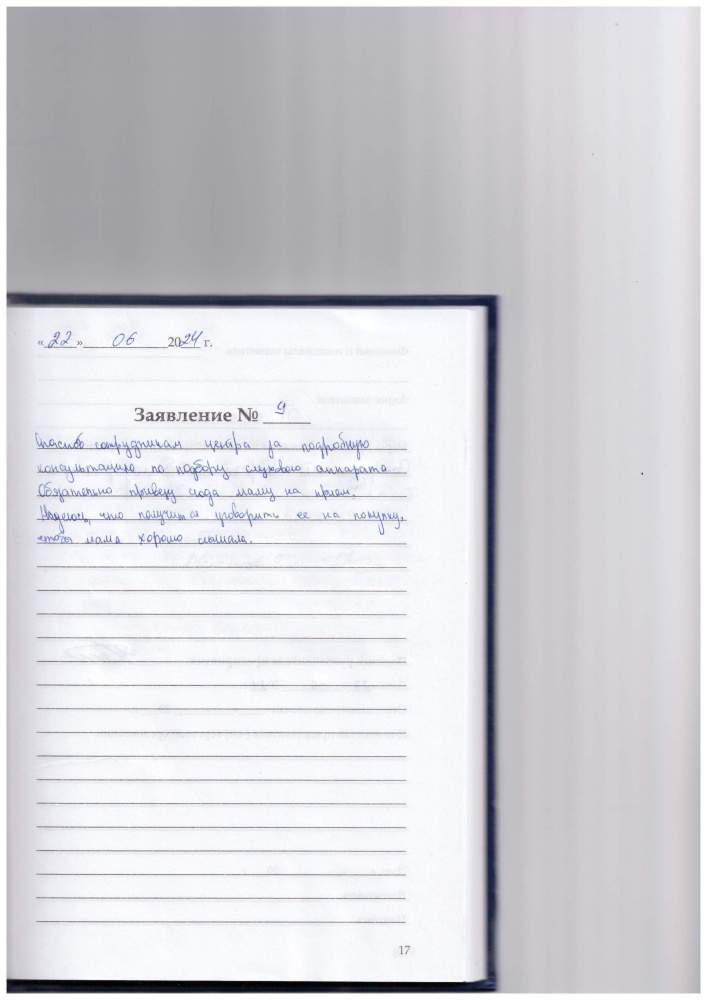 «22» 06 2024 г.
Заявление № 9
Спасибо сотрудникам центра за подробную
консультацию по подбору слухового аппарата
Обязательно привезу сюда маму на прием.
Надеюсь, что получится уговорить ее на покупку,
чтобы мама хорошо слышала.
17